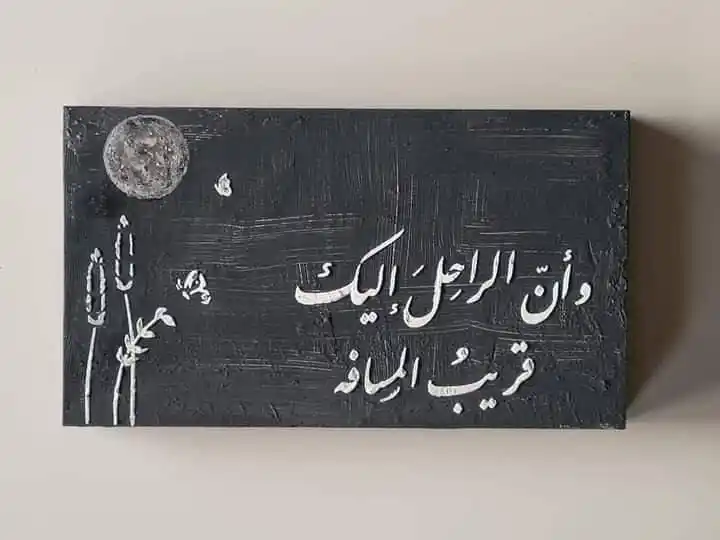 وأنّ الراحِلَ إليك
قريبُ المِسافه